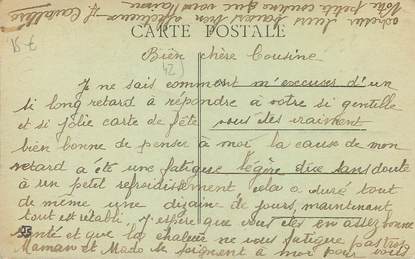 CARTE POSTALE
Bien chère Cousine
Je ne sais comment m'excuser d'un
si long retard à répondre à votre si gentille
et si jolie carte de fête vous êtes vraiment
bien bonne de penser à moi la cause de mon
retard a été une fatigue légère due sans doute
à un petit refroidissement cela a duré tout
de même une dizaine de jours, maintenant
tout est rétabli, J'espère que vous êtes en assez bonne
santé et que la chaleur ne vous fatigue pas trop
Maman et Mado se joignent à moi pour vous
adresser leurs baisers bien affectueux
Votre petite cousine qui vous